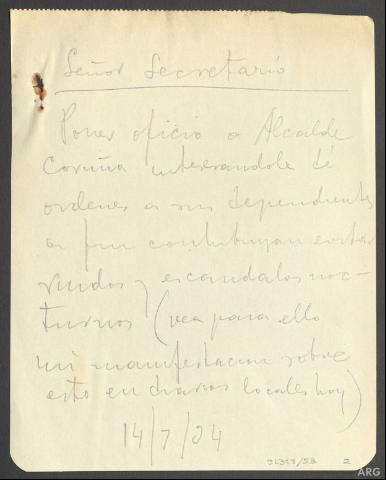 Señor Secretario
Poner oficio a Alcalde
Coruña interesandole dé
ordenes a sus dependientes
a fin contribuyan evitar
ruidos y escandalos noc-
turnos (vea para ello
mi manifestacion sobre
esto en diarios locales hoy)
14/7/24
2
ARG